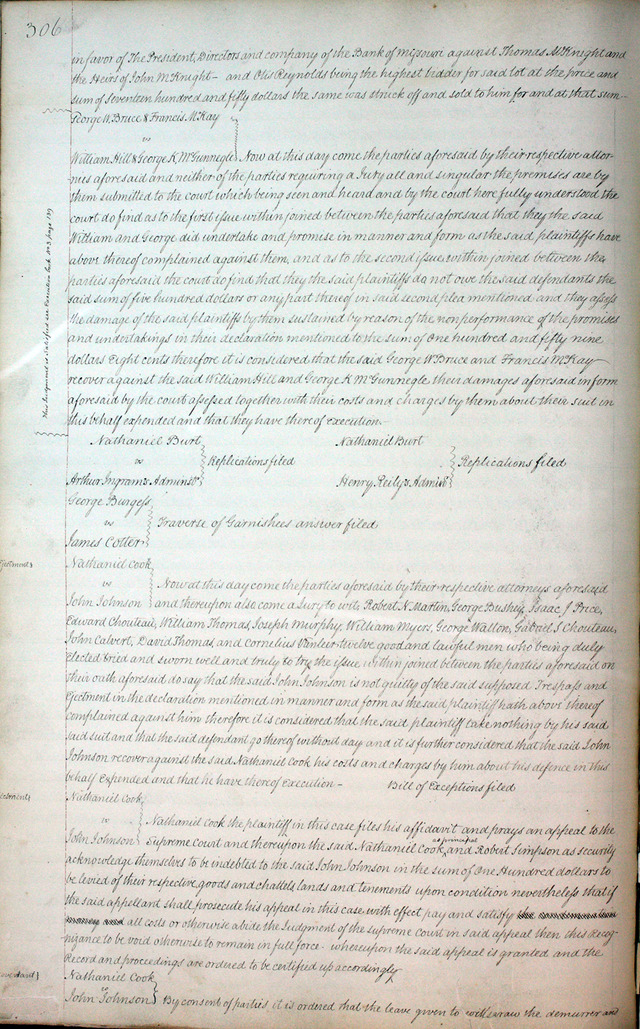 306
in favor of The President, Directors and company of the Bank of Missouri against Thomas McKnight and
the Heirs of John McKnight – and Otis Reynolds being the highest bedder for said lot at the price and
sum of Seventeen hundred and fifty dollars the same was struck off and sold to him for and at that sum–
George W. Bruce & Francis McKay
vs
William Hill & George K. McGunnegle } Now at this day come the parties aforesaid by their respective attor-
nies aforesaid and neither of the parties requiring a Jury all and singular the premises are by
them submitted to the court which being seen and heard and by the court here fully understood the
court do find as to the first issue within joined between the parties aforesaid that they the said
William and George did undertake and promise in manner and form as the said plaintiffs have
above thereof complained against them, and as to the second issue within joined between the
parties aforesaid the court do find that they the said plaintiffs do not owe the said defendants the
said sum of five hundred dollars or any part thereof in said second plea mentioned and they assess
the damage of the said plaintiffs by them sustained by reason of the nonperformance of the promises
and undertakings in their declaration mentioned to the sum of One hundred and fifty nine
dollars Eight cents therefore it is considered that the said George W Bruce and Francis McKay
recover against the said William Hill and George K McGunnegle, their damages aforesaid in form
aforesaid by the court assessed together with their costs and charges by them about their suit in
this behalf expended and that they have thereof execution–
This Judgment is Satisfied see Execution Book No 3 page 139
Nathaniel Burt
vs
Arthur Ingram's Adminsr. } Replications filed
Nathaniel Burt
Henry Reily's Adminr. } Replications filed
George Burgess
vs
James Cotter } Traverse of Garnishees answer filed
Nathaniel Cook
vs } Now at this day come the parties aforesaid by their respective attorneys aforesaid
John Johnson } and thereupon also come a Jury to wit: Robert N. Martin, George Bushey, Isaac J Price,
Edward Chouteau, William Thomas, Joseph Murphy, William Myers, George Walton, Gabriel S. Chouteau,
John Calvert, David Thomas, and Cornelius Vanleir twelve good and lawful men who being duly
Elected tried and sworn well and truly to try the issue within joined between the parties aforesaid on
their oath aforesaid do say that the said John Johnson is not guilty of the said supposed Trespass and
Ejectment in the declaration mentioned in manner and form as the said plaintiff hath above thereof
complained against him therefore it is considered that the said plaintiff take nothing by his said
said suit and that the said defendant go thereof without day and it is further considered that the said John
Johnson recover against the said Nathaniel Cook his costs and charges by him about his defence in this
behalf Expended and that he have thereof Execution – Bill of Exceptions filed
Nathaniel Cook
vs } Nathaniel Cook the plaintiff in this case files his affidavit and prays an appeal to the
John Johnson } Supreme Court and thereupon the said Nathaniel Cook as principal and Robert Simpson as security
acknowledge themselves to be indebted to the said John Johnson in the sum of One Hundred dollars to
be levied of their respective, goods and chattels lands and tenements upon condition nevertheless that if
the said appellant shall prosecute his appeal in this case with effect pay and satisfy
all costs or otherwise abide the Judgment of the supreme court in said appeal then this Recog-
nizance to be void otherwise to remain in full force – whereupon the said appeal is granted and the
Record and proceedings are ordered to be certified up accordingly
Nathaniel Cook
vs
John Johnson } By consent of parties it is ordered that the leave given to withdraw the demurrer and